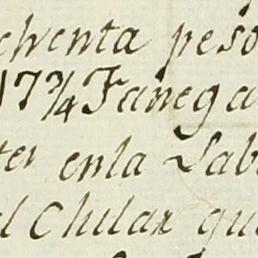 chenta peso
17 3/4 Fanega
en la Lab
el Chilar que